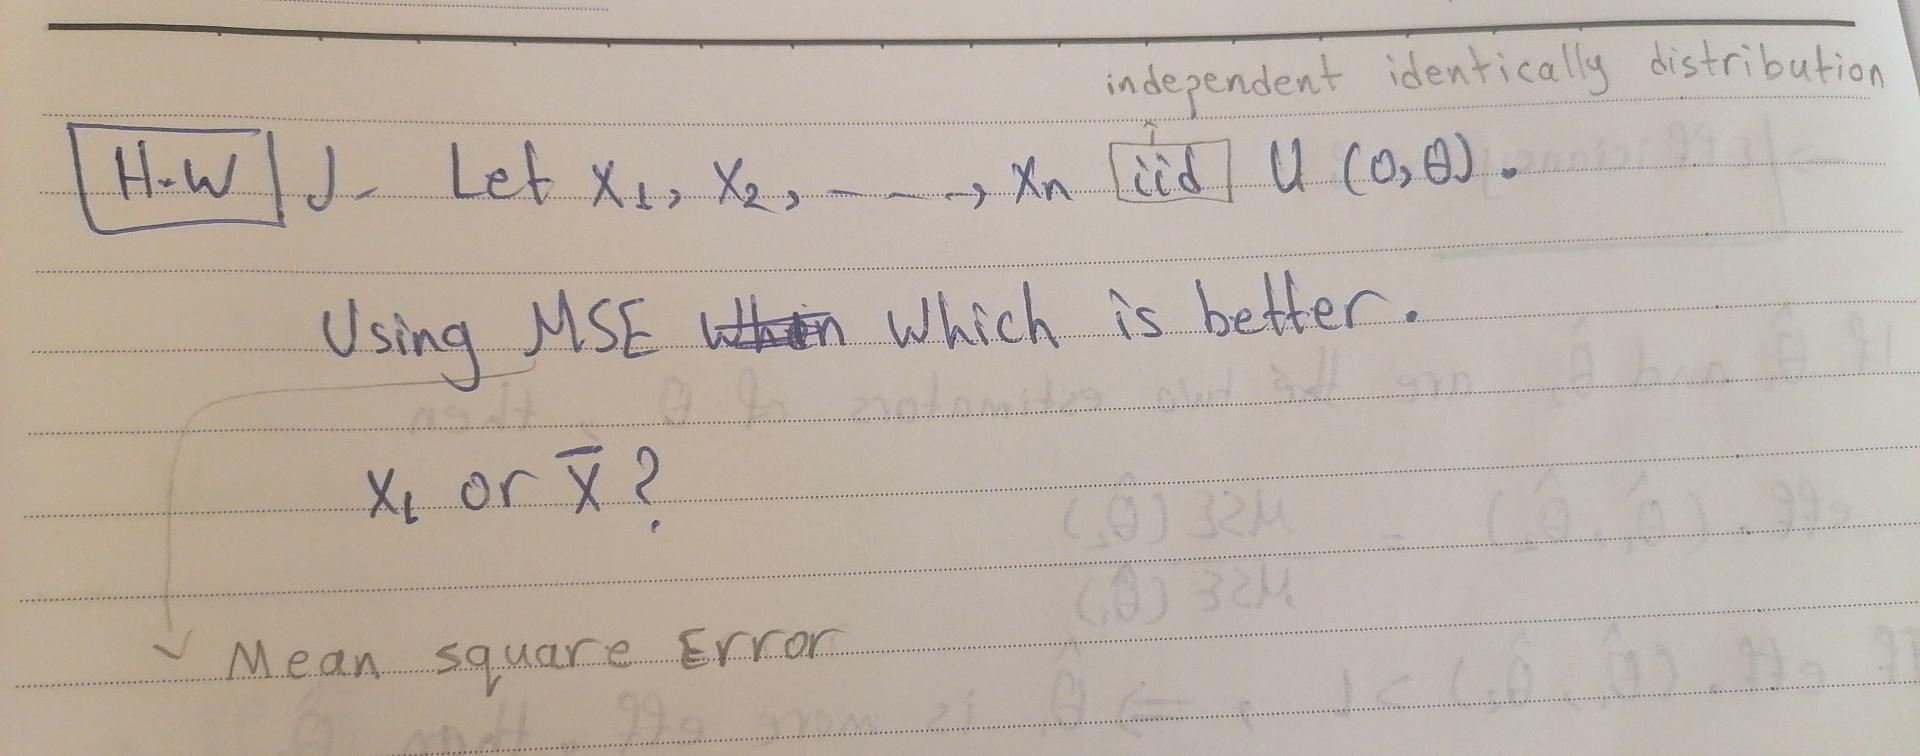 independent identically distribution
H.W 1- Let X1, X2, -----, Xn iid U (0, θ).
Using MSE which is better.
X1 or X̄ ?
Mean square Error